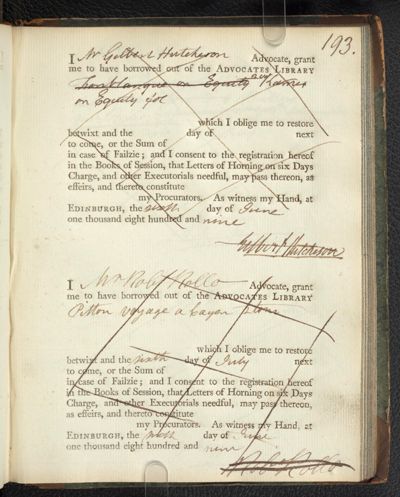 193.
I Mr Gilbert Hutcheson Advocate, grant
me to have borrowed out of the ADVOCATES LIBRARY
on Equity Kames
on Equity fol
which I oblige me to restore
betwixt and the day of next
to come, or the Sum of
in case of Failzie; and I consent to the registration hereof
in the Books of Session, that Letters of Horning on six Days
Charge, and other Executorials needful, may pass thereon, as
effeirs, and thereto constitute
my Procurators. As witness my Hand, at
EDINBURGH, the sixth day of June
one thousand eight hundred and nine
Gilbert Hutcheson
I Mr Robt Rollo Advocate, grant
me to have borrowed out of the ADVOCATES LIBRARY
Pitton voyage a Cayen
which I oblige me to restore
betwixt and the sixth day of July next
to come, or the Sum of
in case of Failzie; and I consent to the registration hereof
in the Books of Session, that Letters of Horning on six Days
Charge, and other Executorials needful, may pass thereon,
as effeirs, and thereto constitute
my Procurators. As witness my Hand, at
EDINBURGH, the sixth day of June
one thousand eight hundred and nine
Rob Rollo